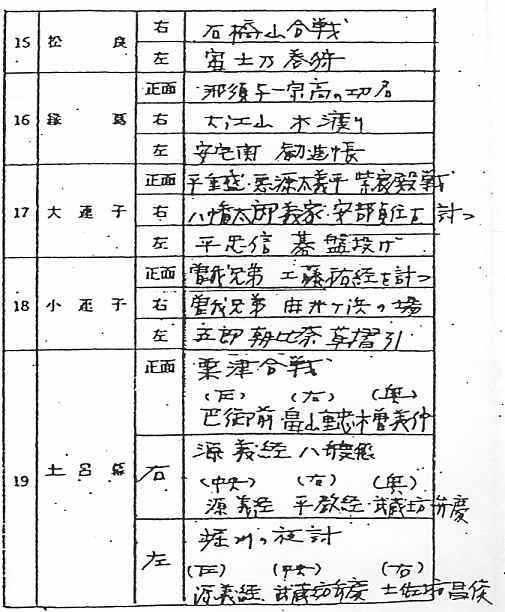 15 松良 右 石橋山合戦
左 富士乃巻狩
16 緑葛 正面 那須与一宗高の功名
右 大江山 木渡り
左 安宅関 勧進帳
17 大連子 正面 平重盛・悪源太義平 紫宸殿戦
右 八幡太郎義家・安部貞任を討つ
左 平忠信 碁盤投げ
18 小連子 正面 曽我兄弟 工藤祐経を討つ
右 曽我兄弟 の場
左 五郎 朝比奈 草摺引
19 土呂幕 正面 粟津合戦
(左) (右) (奥)
巴御前 畠山重忠 木曽義仲
右 源義経 八艘飛
(中央) (右) (奥)
源義経 平教経 武蔵坊弁慶
左 堀川の夜討
(左) (中央) (右)
源義経 武蔵坊弁慶 土佐坊昌俊